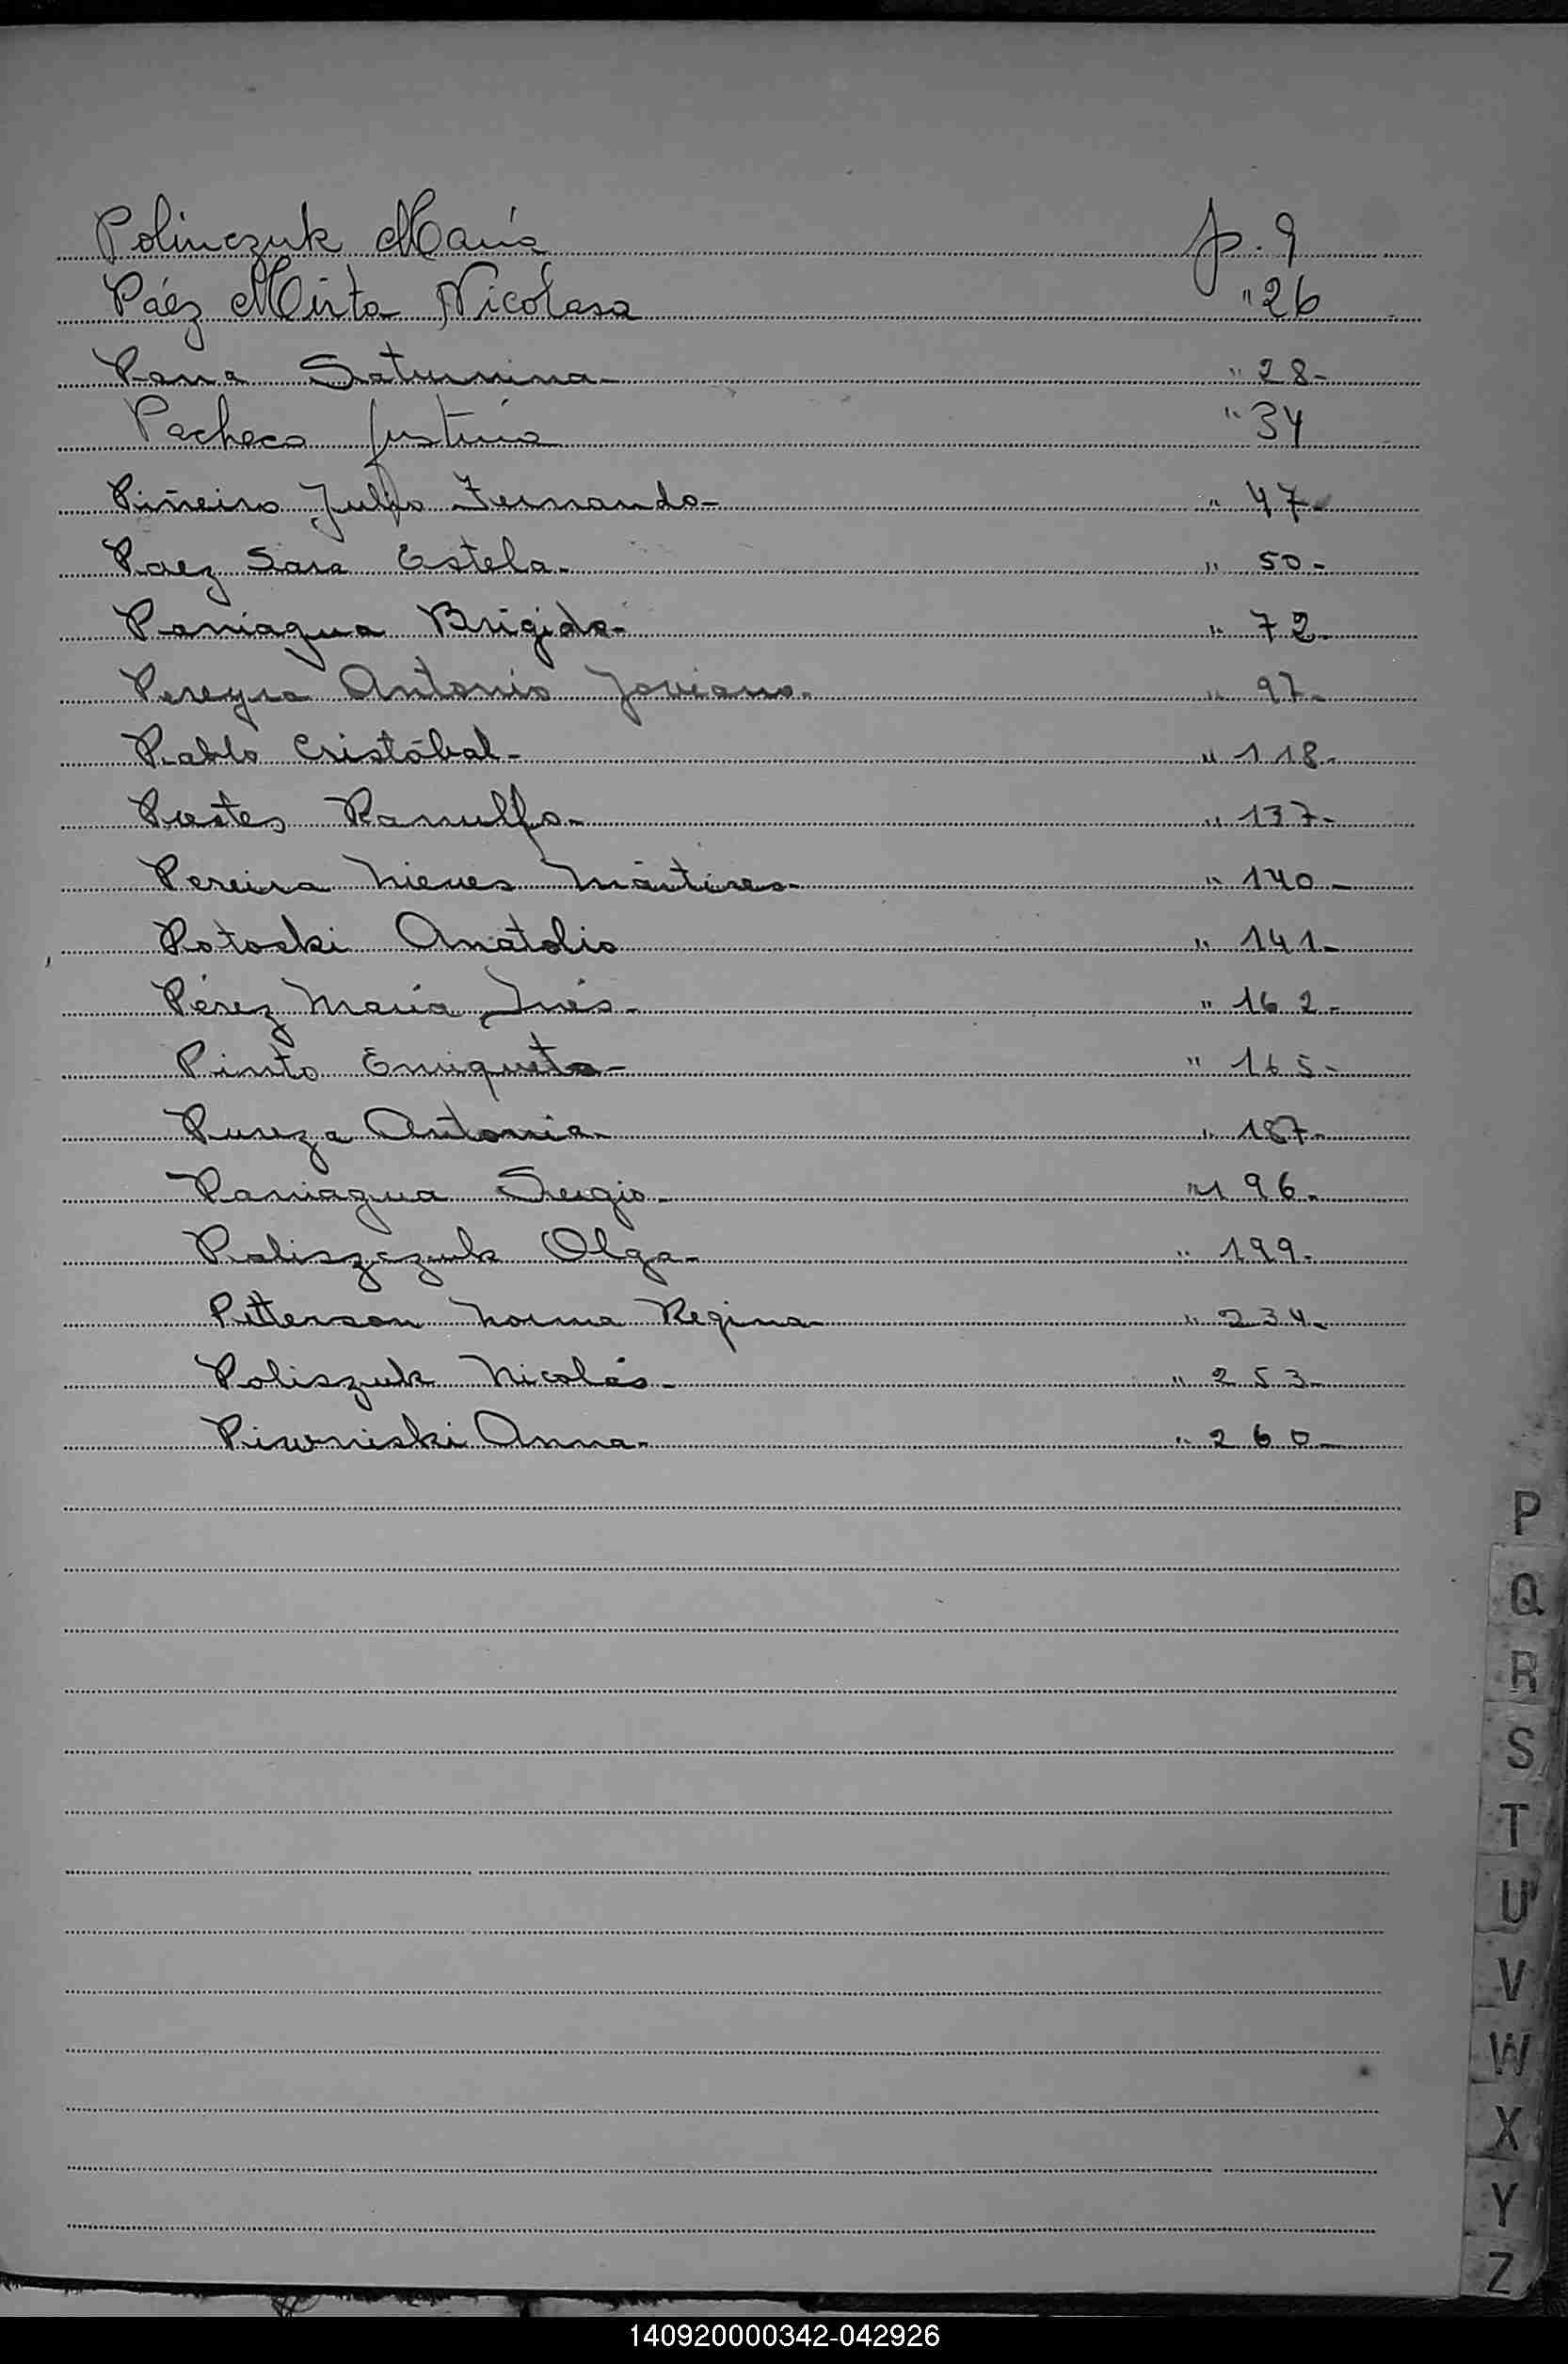 Polinczuk María p. 9
Páez Mirta Nicolasa " 26
Pana Saturnina- " 28-
Pacheco Justina " 34
Piñeiro Julio Fernando- " 47-
Paez Sara Estela- " 50-
Paniagua Brigida- " 72-
Pereyra Antonio Joviano- " 97-
Pablo Cristóbal- " 118-
Prestes Ranulfo- " 137-
Pereira Nieves Mártires- " 140-
Potoski Anatolio " 141-
Pérez María Inés- " 162-
Pinto Enriqueta- " 165-
Pureza Antonia- " 187-
Paniagua Sergio- " 196-
Poliszczuk Olga- " 199-
Petterson Norma Regina- " 234-
Poliszuk Nicolás- " 253-
Piwniski Anna- " 260-
P
Q
R
S
T
U
V
W
X
Y
Z
140920000342-042926